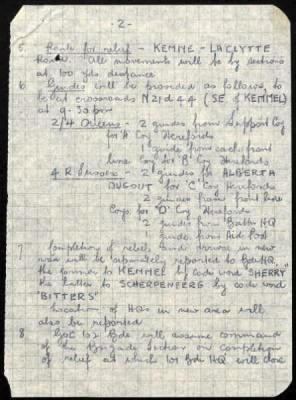 - 2 -
5. Route for relief - KEMMEL - LACLYTTE
Road. All movements will be by sections
at 100 yds distance
6 Guides will be provided as follows, to
be at crossroads N21d44 (SE of KEMMEL)
at 9-30pm
2/4 Queens - 2 guides from Support Coy
for 'A' Coy Herefords
1 guide from each front
line Coy for 'B' Coy Herefords
4 R Sussex - 2 guides for ALBERTA
DUGOUT for 'C' Coy Herefords
2 guides from front line
Coys for 'D' Coy Herefords
2 guides from Battn HQ
1 guide from Aid Post
7 Completion of relief and arrival in new
area will be separately reported to Bde HQ,
the former to KEMMEL by code word "SHERRY"
the latter to SCHERPENBERG by code word
"BITTERS"
Location of HQs in new area will
also be reported
8 GOC 102 Bde will assume command
of the Brigade Sector on completion
of relief at which 101 Bde HQ will close